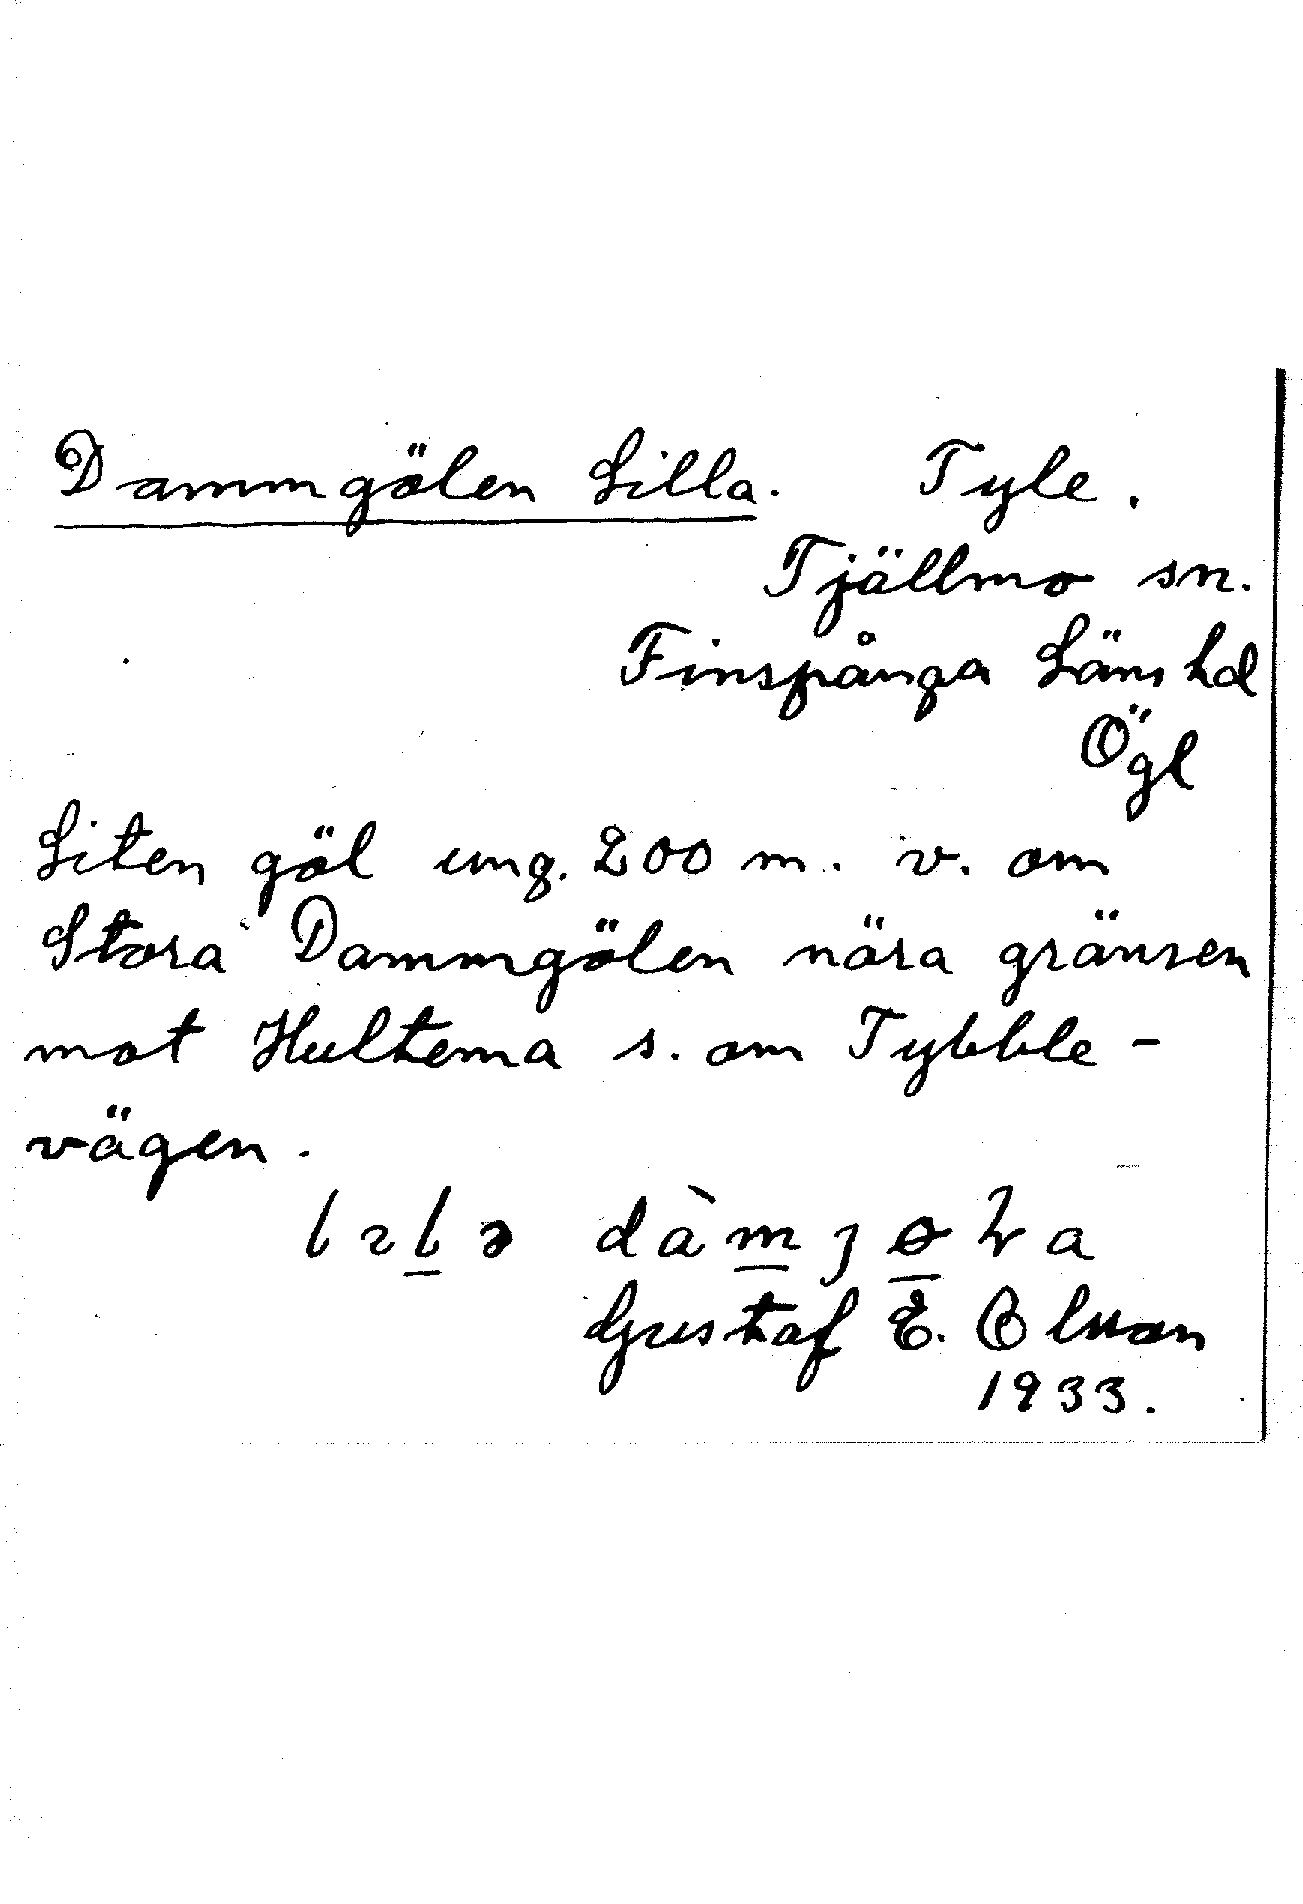 Dammgölen Lilla. Tyle.
Tjällmo sn.
Finspånga Läns hd
Ögl
Liten göl ung. 200 m. v. om
Stora Dammgölen nära gränsen
mot Hultema s. om Tybble-
vägen.
Gustaf E. Olsson
1933.